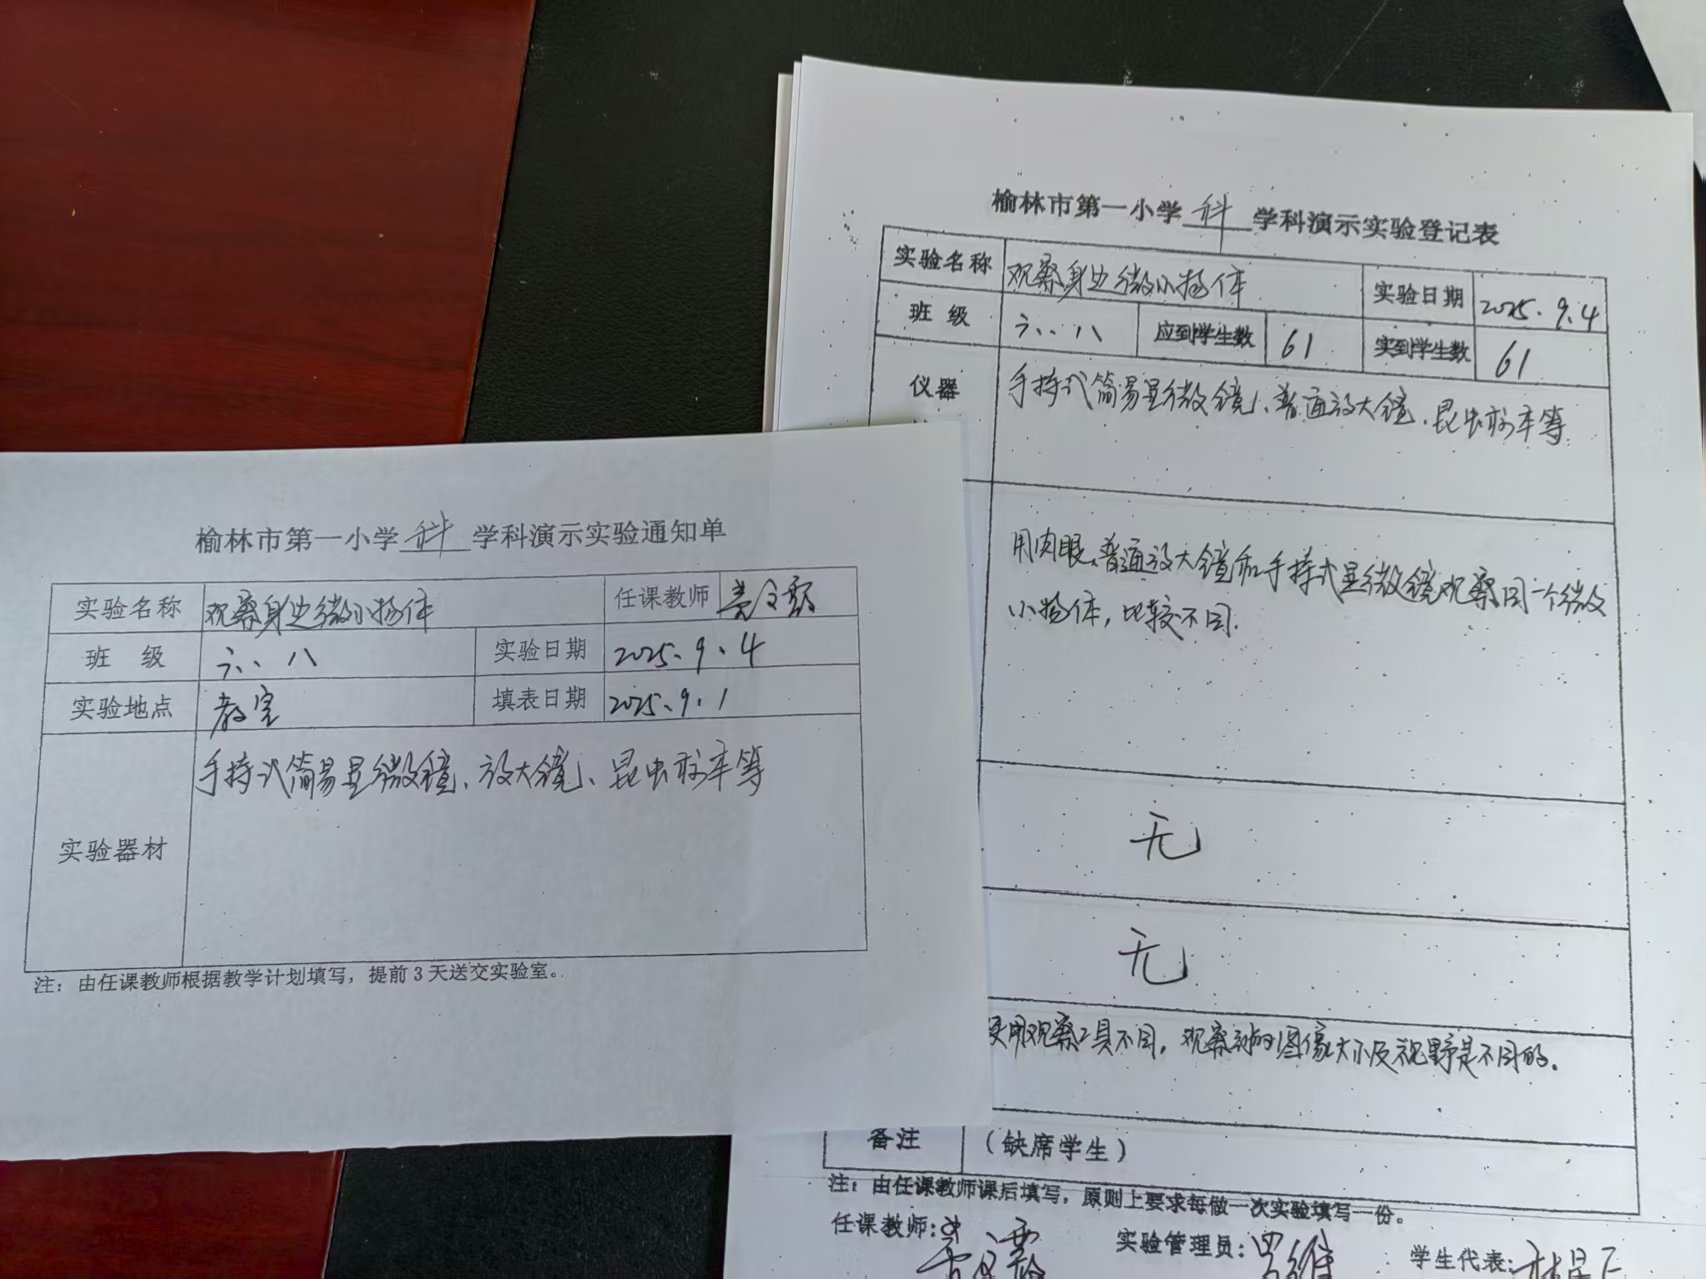 榆林市第一小学 科 学科演示实验通知单
实验名称 观察身边微小物体 任课教师
班 级 六、八 实验日期 2025.9.4
实验地点 教室 填表日期 2025.9.1
实验器材 手持式简易显微镜、放大镜、昆虫标本等
注：由任课教师根据教学计划填写，提前3天送交实验室。
榆林市第一小学 科 学科演示实验登记表
实验名称 观察身边微小物体 实验日期 2025.9.4
班 级 六、八 应到学生数 61 实到学生数 61
仪器 手持式简易显微镜、普通放大镜、昆虫标本等
用肉眼、普通放大镜和手持式显微镜观察同一个微
小物体，比较不同.
无
无
使用观察工具不同，观察到的图像大小及视野是不同的。
备注 （缺席学生）
注：由任课教师课后填写，原则上要求每做一次实验填写一份。
任课教师： 实验管理员： 学生代表：